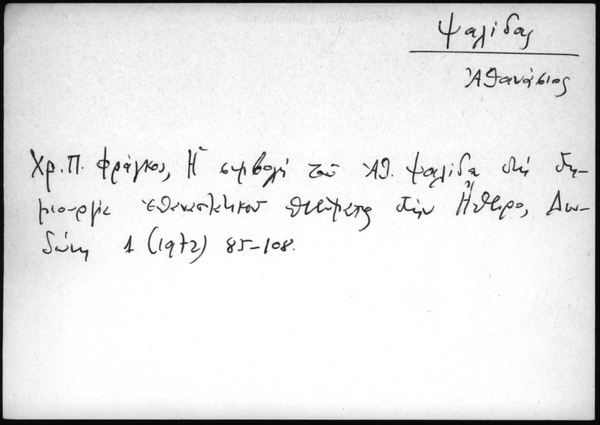 Ψαλίδας
Ἀθανάσιος
Χρ. Π. Φράγκος, Ἡ συμβολή τοῦ Ἀθ. Ψαλίδα στή δη-
μιουργία ἐπαναστατικοῦ πνεύματος στήν Ἤπειρο, Δω-
δώνη 1 (1972) 85-108.